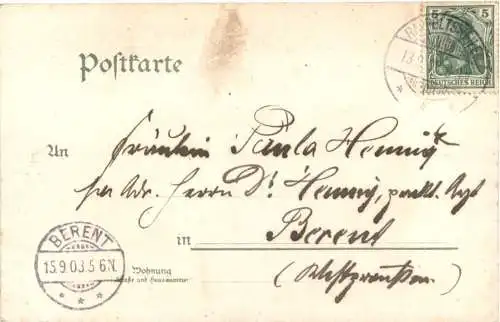 5 5
DEUTSCHES REICH
Postkarte
An Fräulein Paula Hennig
pr. Adr. Herrn Dr. Hennig, prakt. Arzt
in Berent
(Westpreußen)
BERENT
15.9.03.5-6N.
Wohnung
(Straße und Hausnummer)